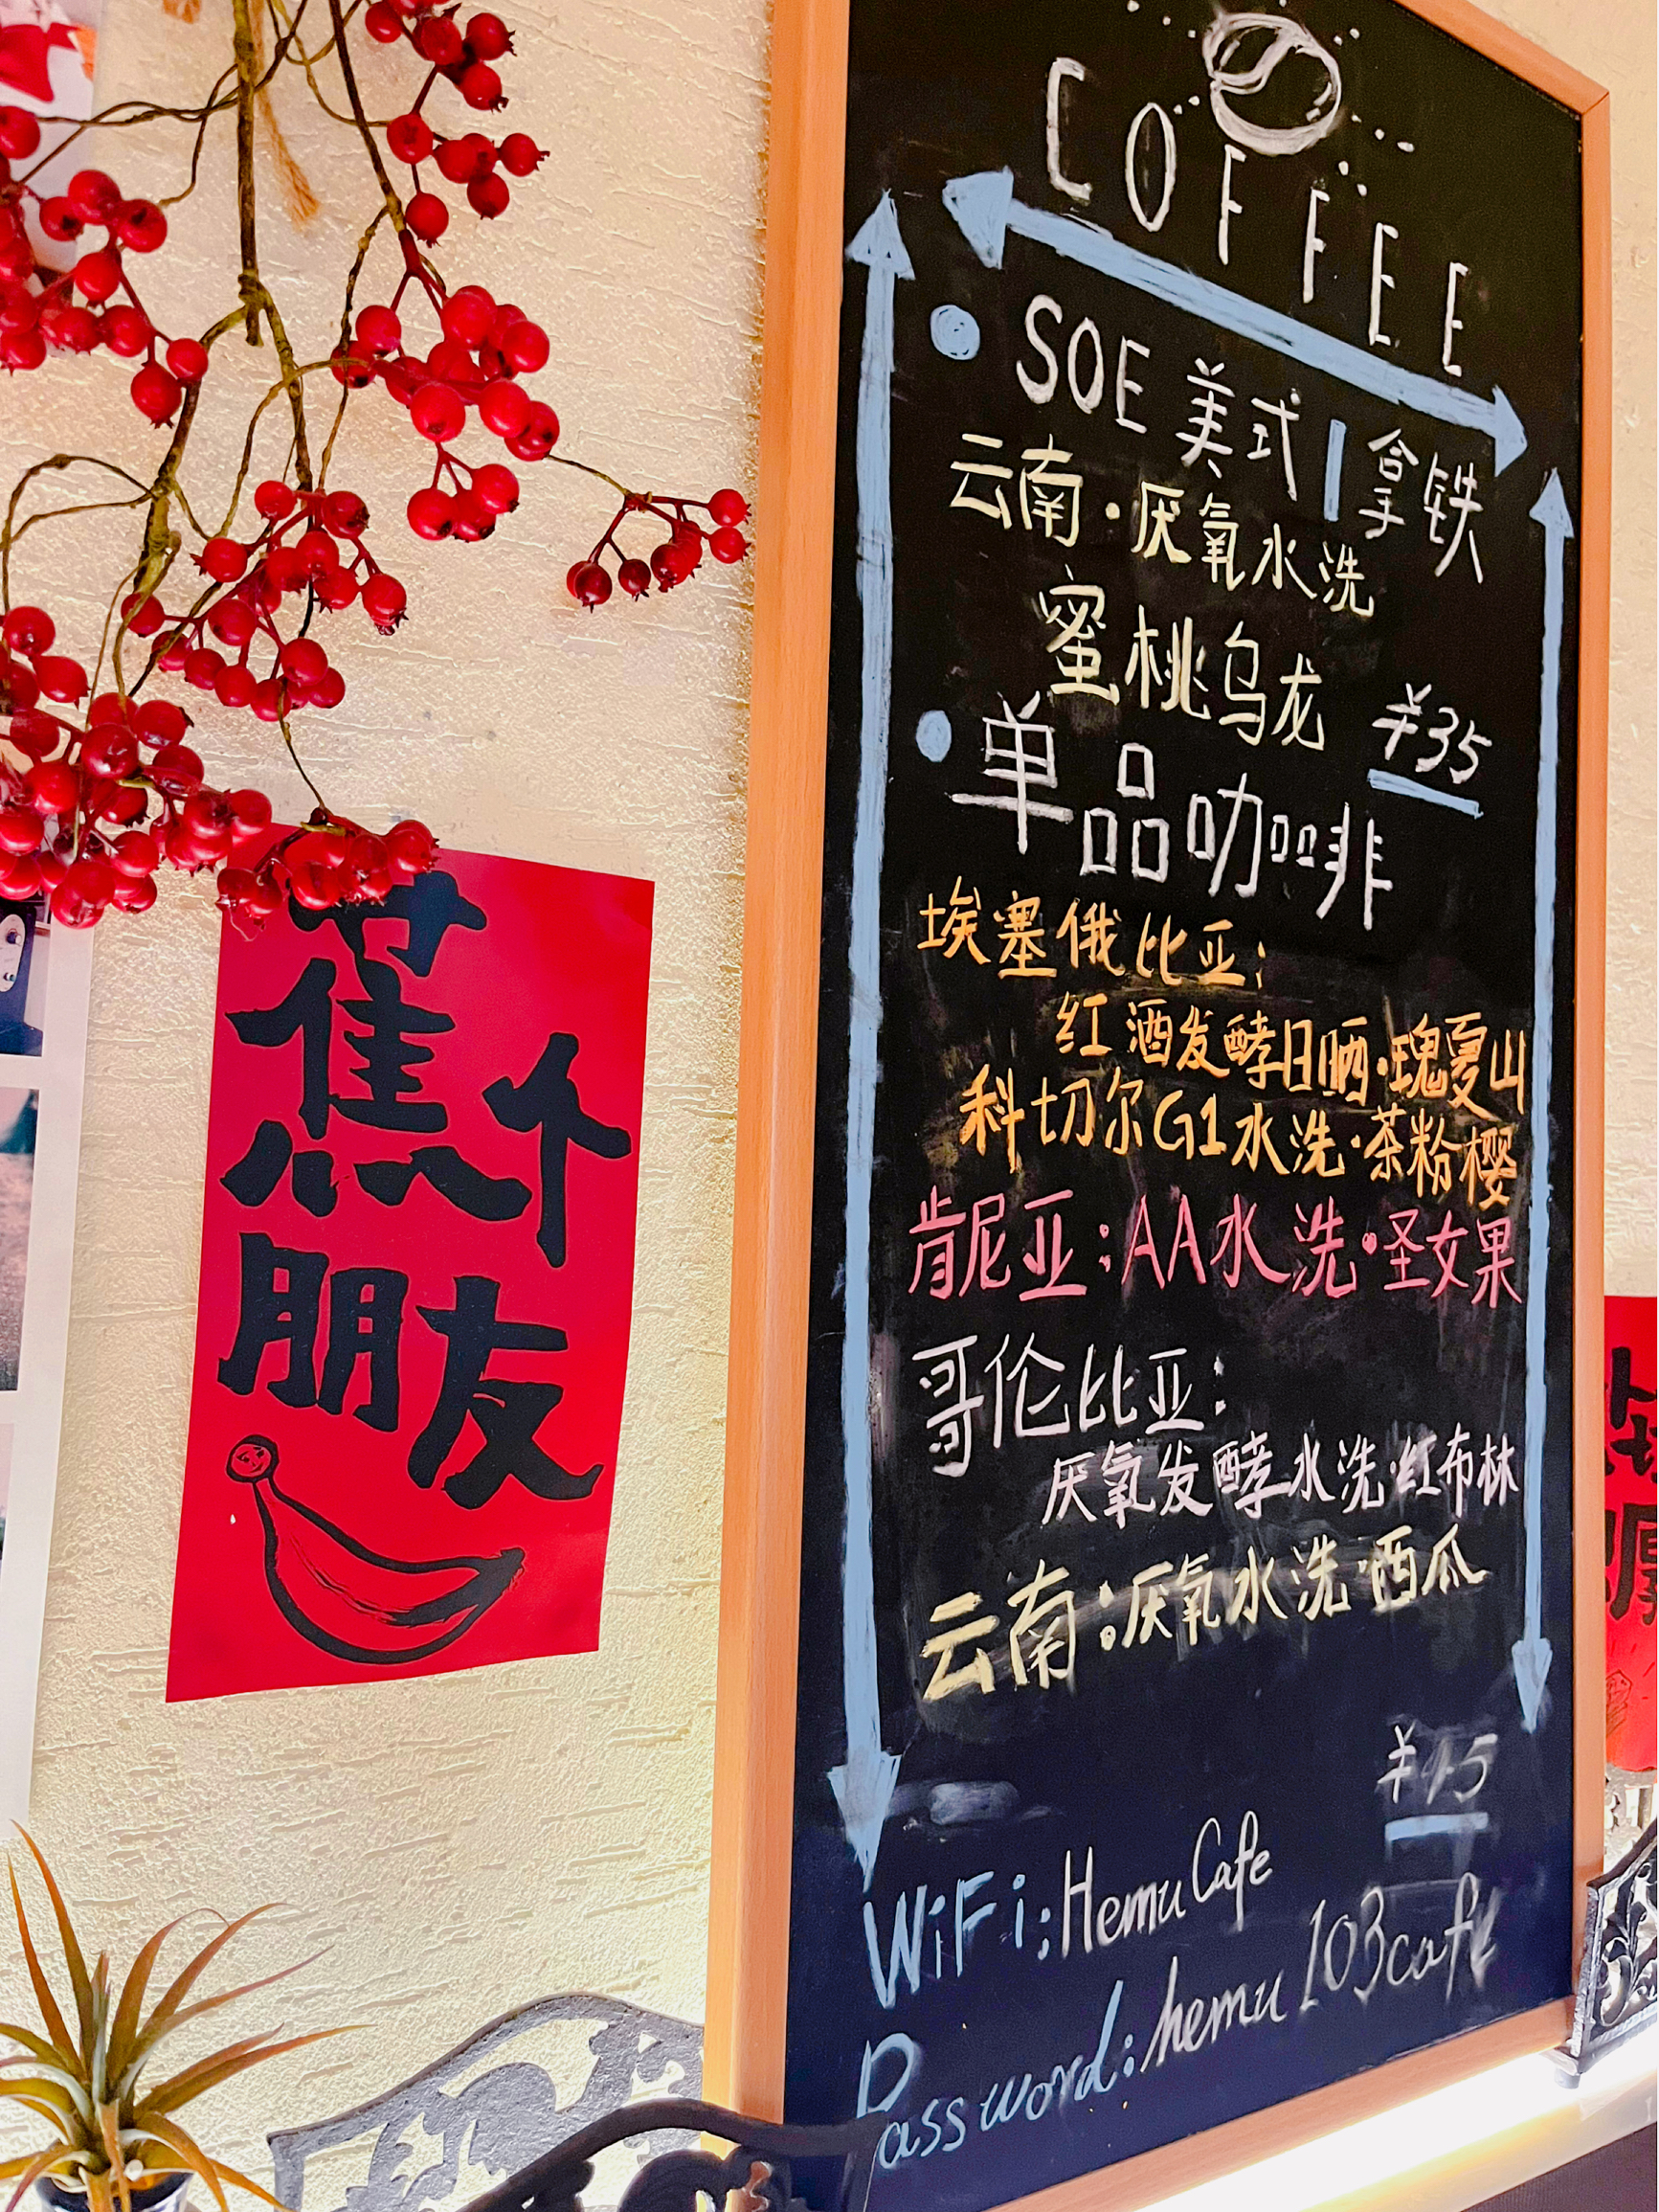 蕉个
朋友
COFFEE
SOE 美式 | 拿铁
云南·厌氧水洗
蜜桃乌龙 ¥35
单品咖啡
埃塞俄比亚:
红酒发酵日晒·瑰夏山
科切尔G1水洗·茶粉樱
肯尼亚:AA水洗·圣女果
哥伦比亚:
厌氧发酵水洗·红布林
云南:厌氧水洗·西瓜
¥45
WiFi:HemuCafe
Password:hemu103cafe